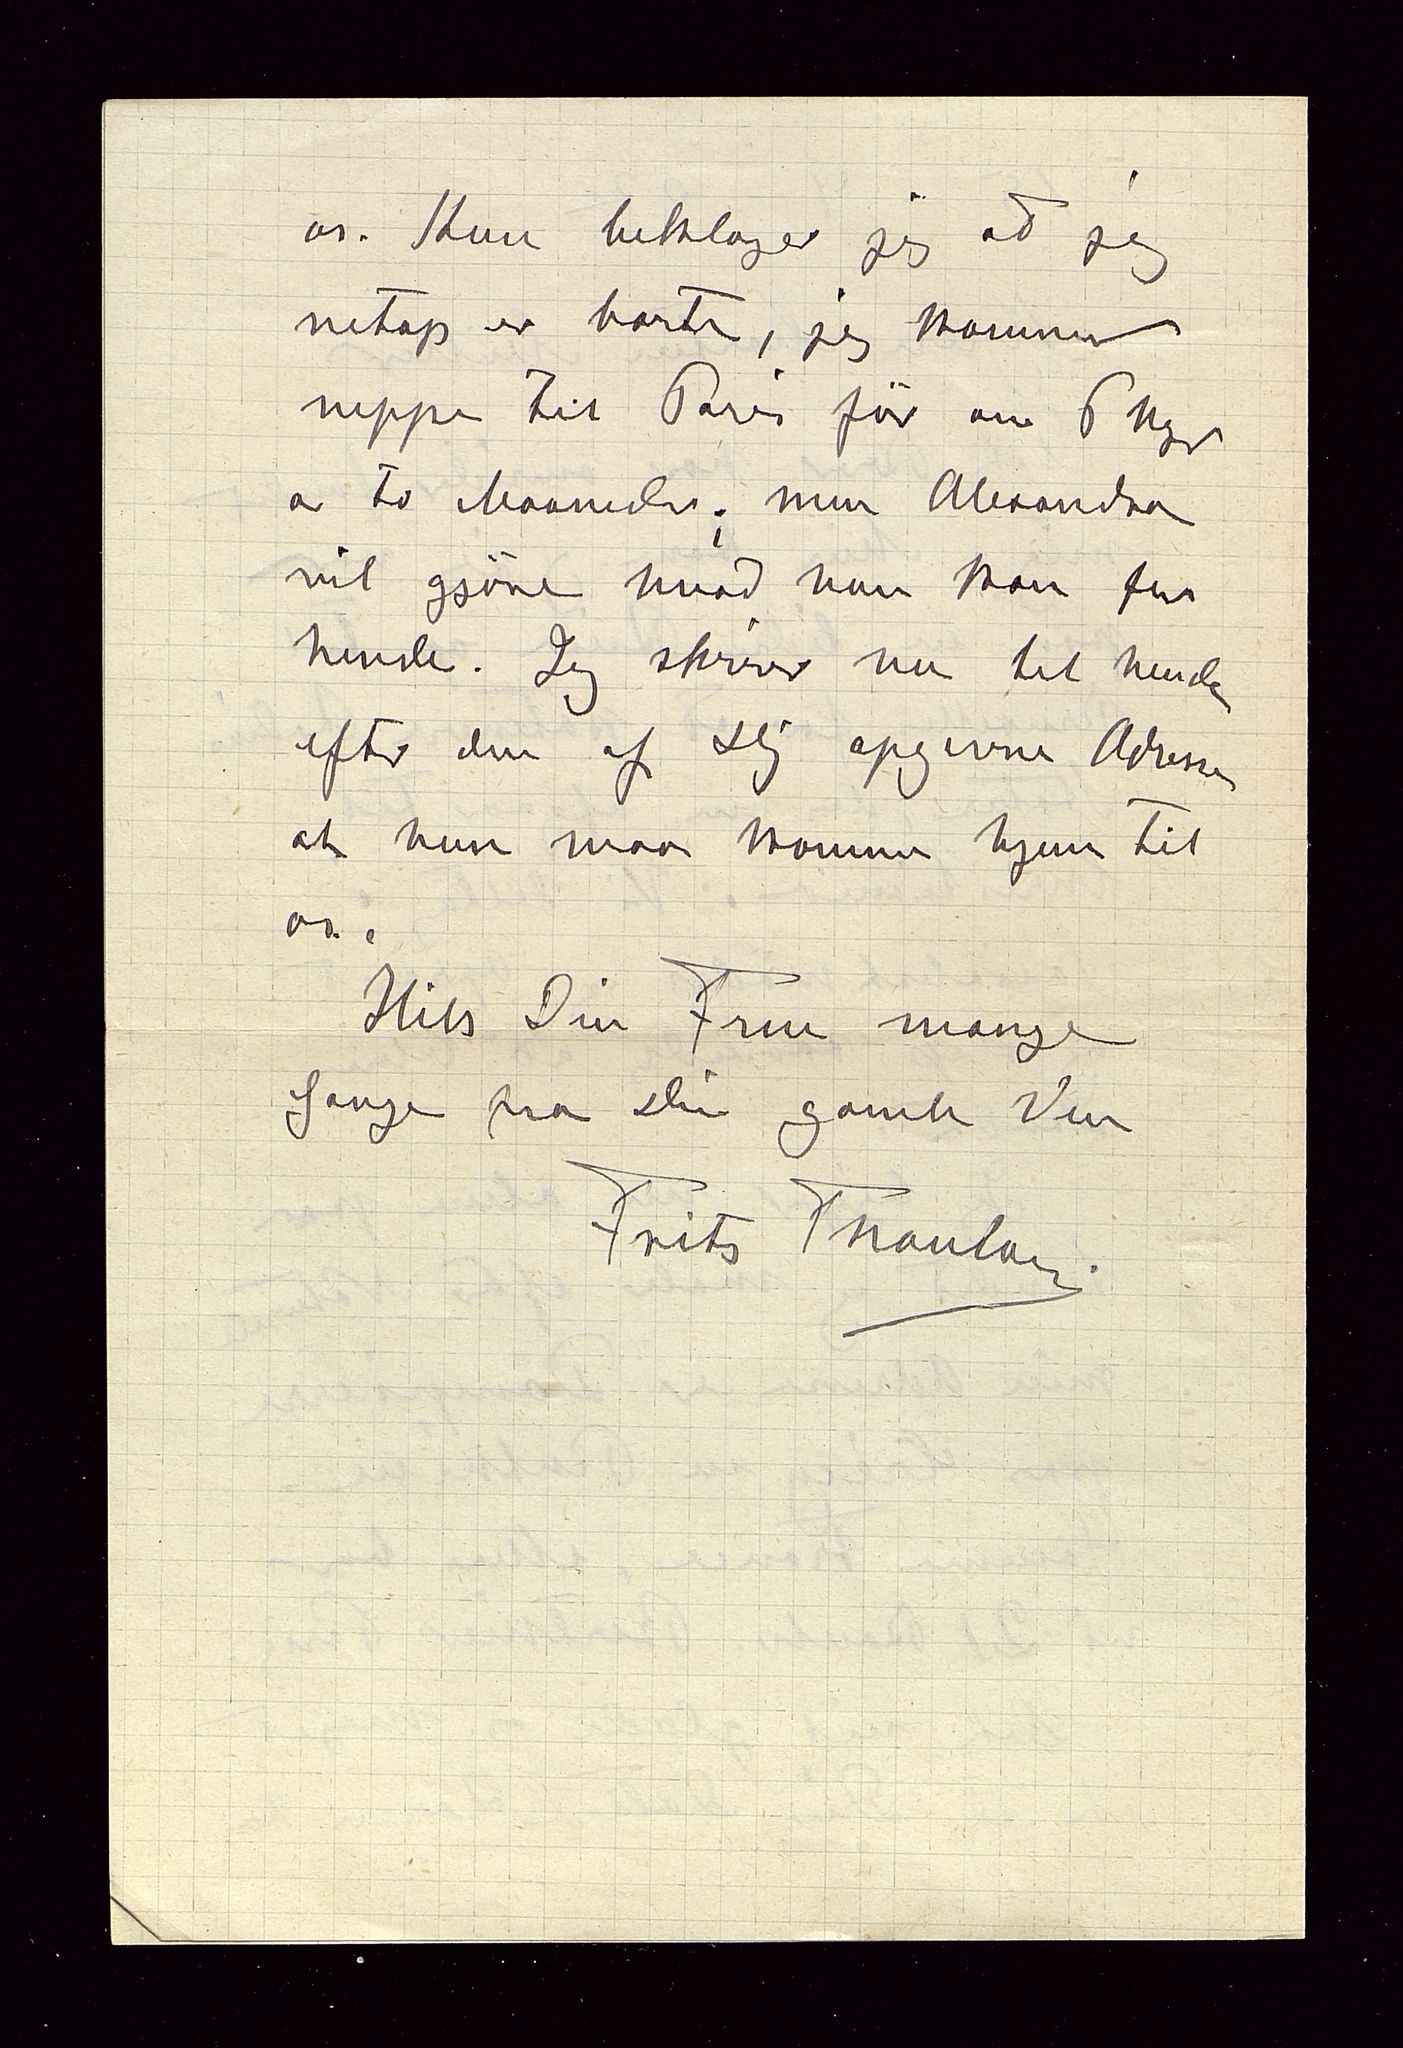 os. Kun beklager jeg at jeg
netop er borte, jeg kommer
neppe til Paris før om
a to Maaneder; men Alexandra
vil gjöre hvad hun kan for
hende. Jeg skriver nu til hende
efter den af Dig opgivne Adresse
at hun maa komme hjem til
os.
Hils Din Frue mange
Gange fra Din gamle Ven
Frits Thaulow.